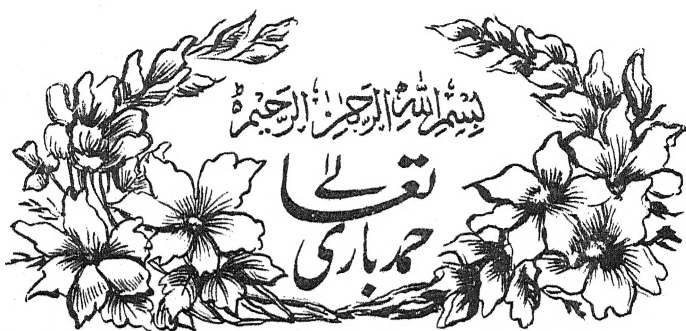 بِسْمِ اللّٰهِ الرَّحْمٰنِ الرَّحِيْمِ
حمد باری تعالےٰ